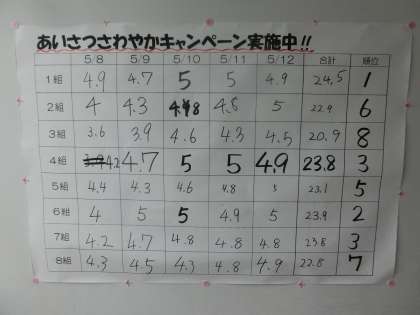 あいさつさわやかキャンペーン実施中!!
5/8 5/9 5/10 5/11 5/12 合計 順位
1組 4.9 4.7 5 5 4.9 24.5 1
2組 4 4.3 4.8 5 22.9 6
3組 3.6 3.9 4.6 4.3 4.5 20.9 8
4組 4.2 4.7 5 5 4.9 23.8 3
5組 4.4 4.3 4.6 4.8 5 23.1 5
6組 4 5 5 4.9 5 23.9 2
7組 4.2 4.7 4.8 4.8 4.8 23.8 3
8組 4.3 4.5 4.3 4.8 4.9 22.8 7